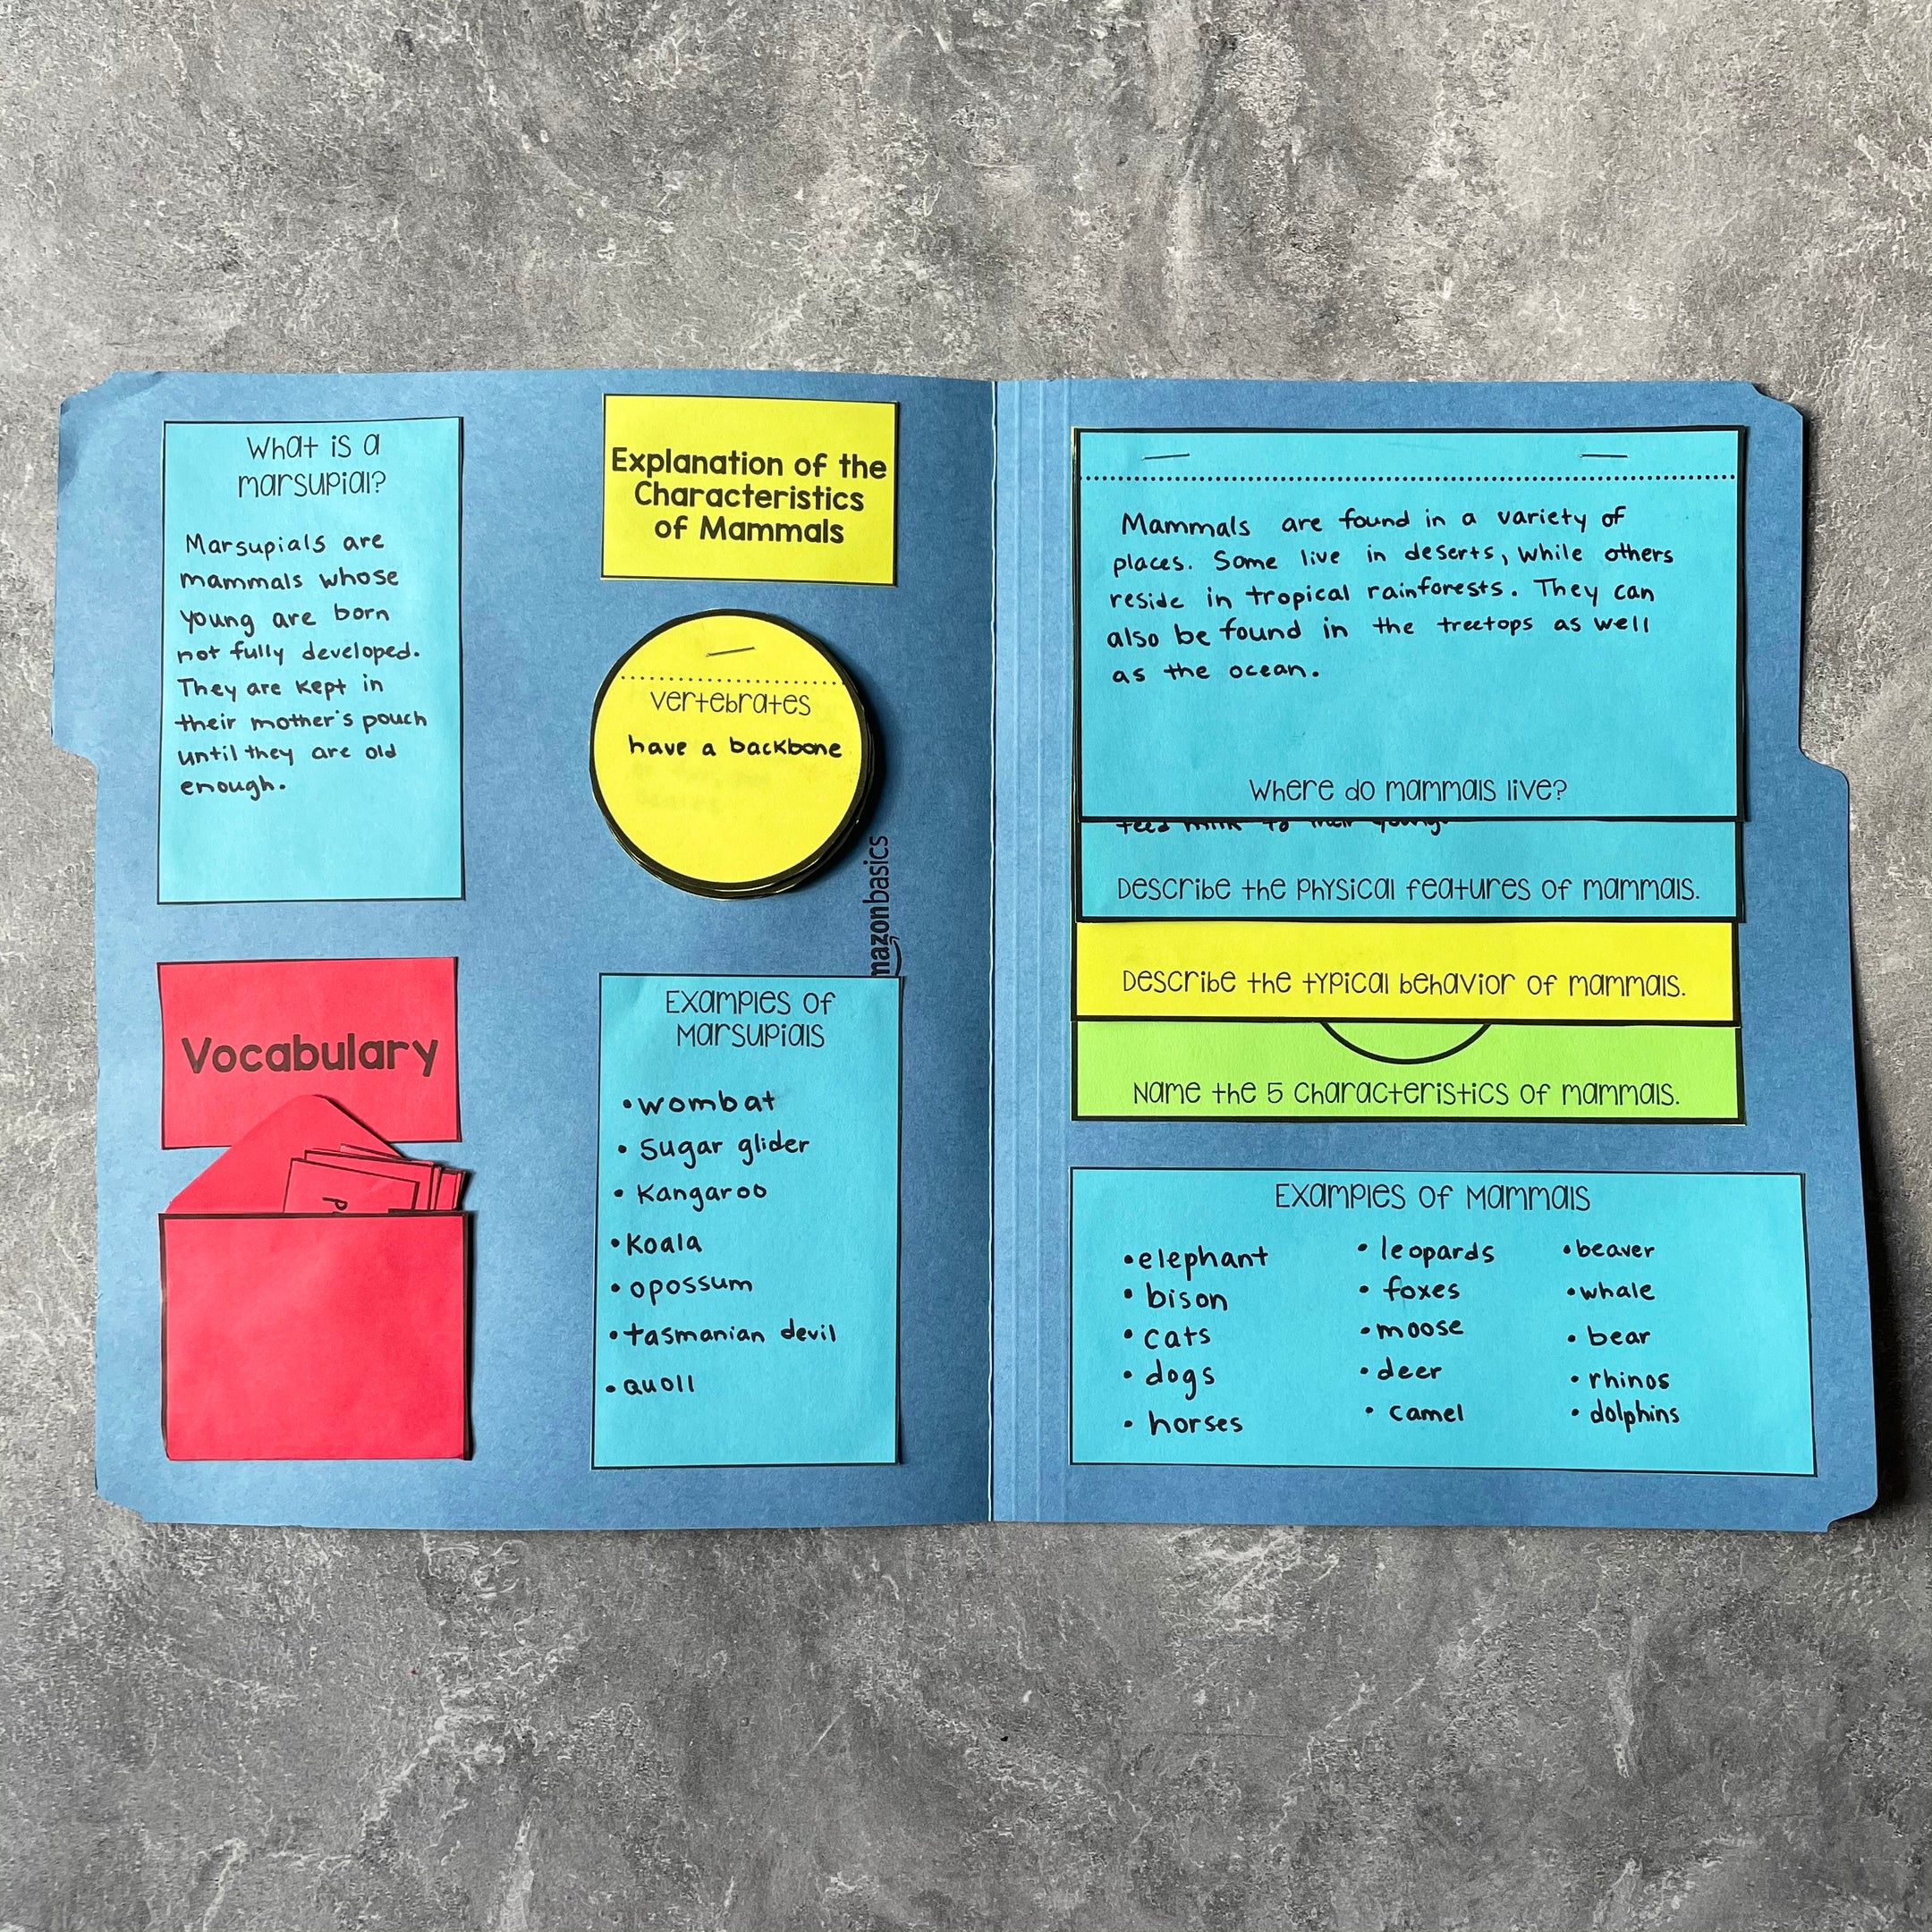 What is a
marsupial?
Marsupials are
mammals whose
young are born
not fully developed.
They are kept in
their mother's pouch
until they are old
enough.
Vocabulary
Explanation of the
Characteristics
of Mammals
vertebrates
have a backbone
mazonbasics
Examples of
Marsupials
• wombat
• Sugar glider
• Kangaroo
• Koala
• opossum
• tasmanian devil
• quoll
Mammals are found in a variety of
places. Some live in deserts, while others
reside in tropical rainforests. They can
also be found in the treetops as well
as the ocean.
Where do mammals live?
feed milk to their young.
Describe the physical features of mammals.
Describe the typical behavior of mammals.
Name the 5 characteristics of mammals.
Examples of Mammals
• elephant
• bison
• cats
• dogs
• horses
• leopards
• foxes
• moose
• deer
• camel
• beaver
• whale
• bear
• rhinos
• dolphins